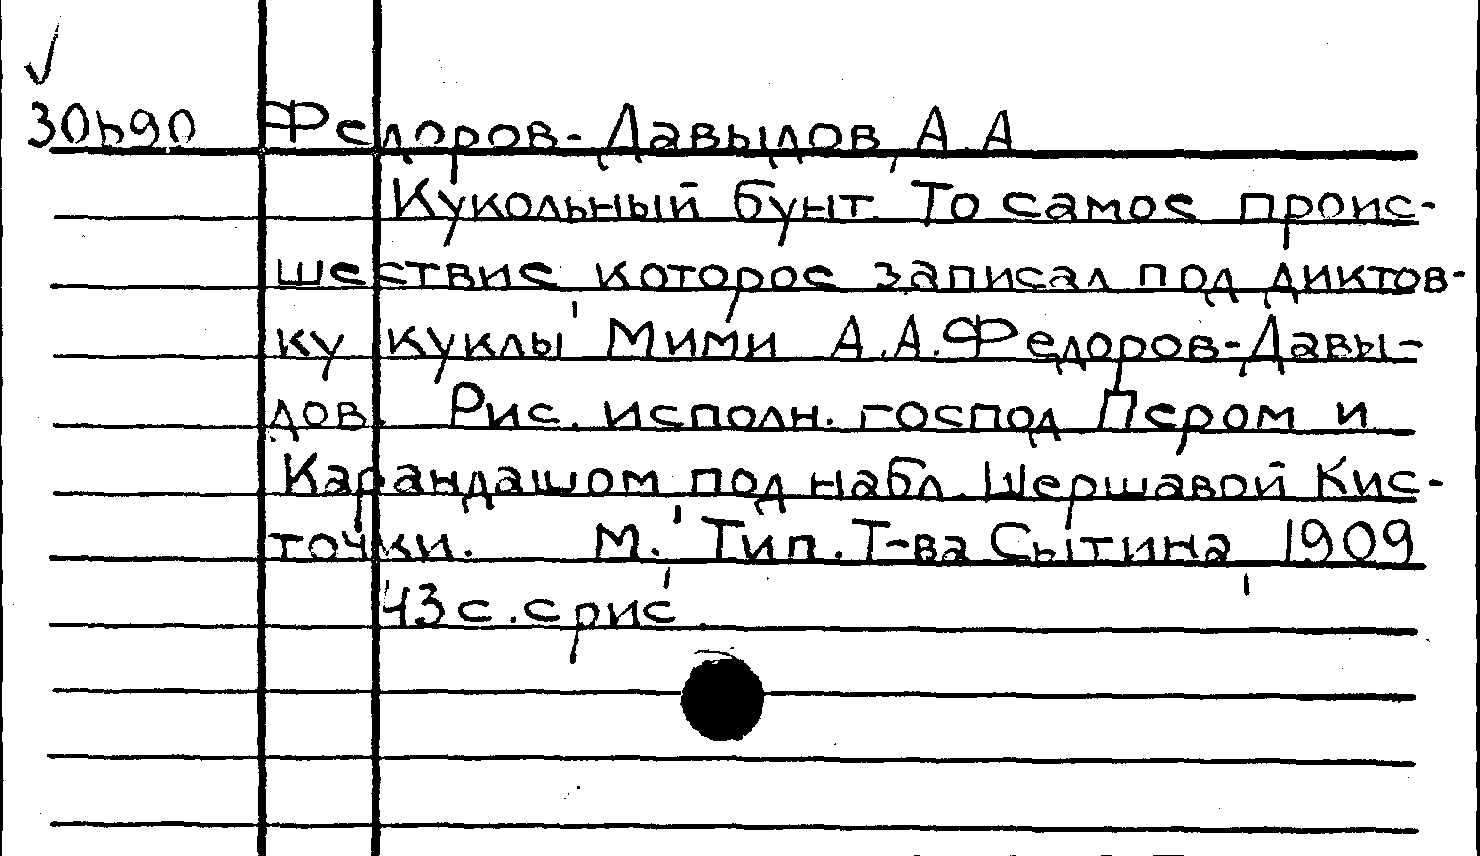 30b90 Федоров-Давыдов, А.А.
Кукольный бунт. То самое проис-
шествие, которое записал под диктов-
ку куклы Мими А.А.Федоров-Давы-
дов. Рис. исполн. господ Пером и
Карандашом, под набл. Шершавой Кис-
точки. М., Тип. Т-ва Сытина, 1909
43 с. с рис.